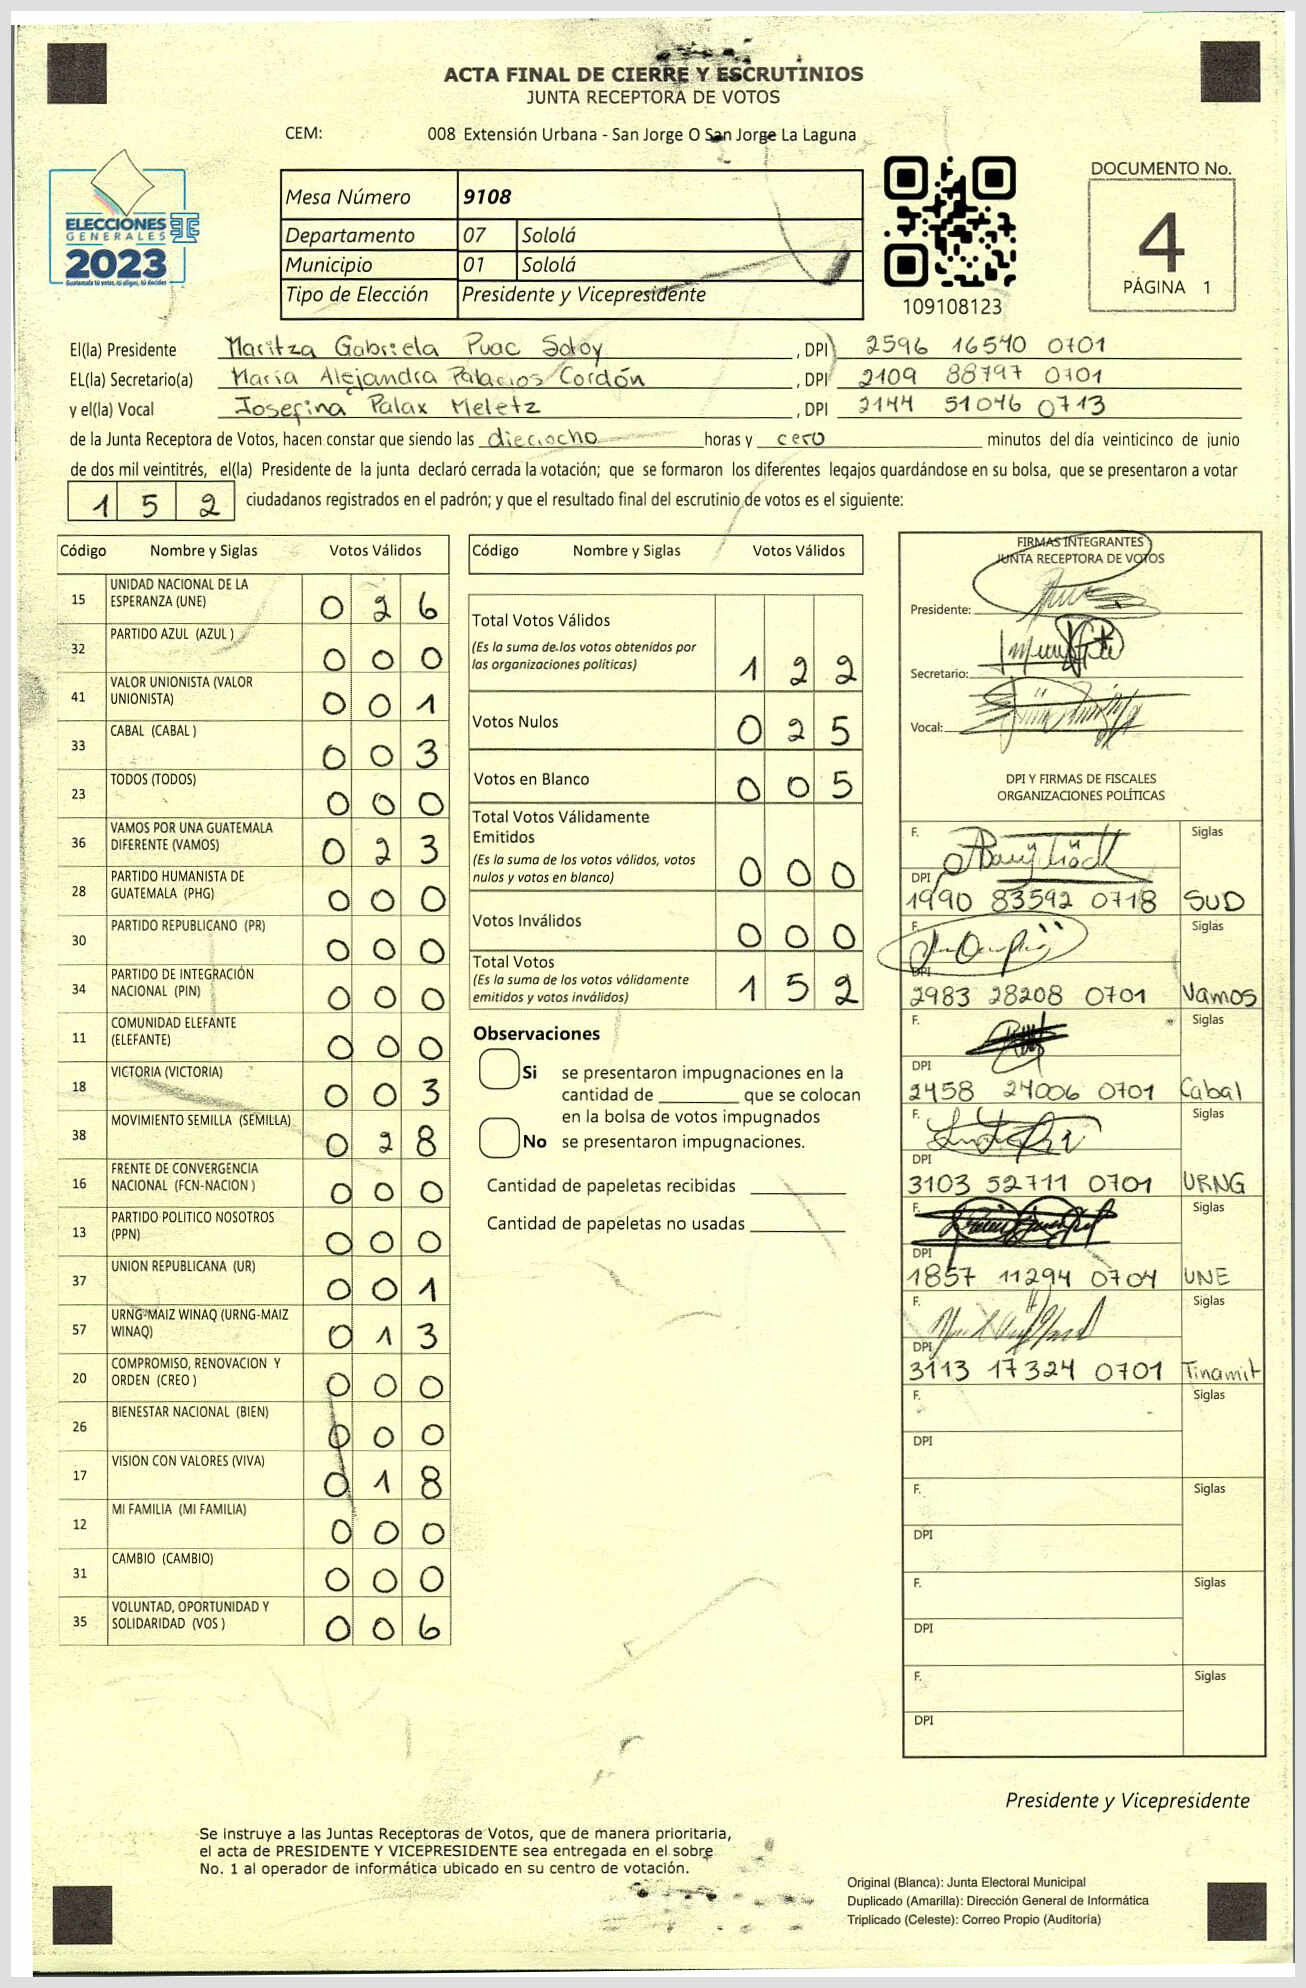 ACTA FINAL DE CIERRE Y ESCRUTINIOS
JUNTA RECEPTORA DE VOTOS
CEM: 008 Extensión Urbana - San Jorge O San Jorge La Laguna
ELECCIONES
GENERALES
2023
Guatemala tú votas, tú eliges, tú decides
Mesa Número 9108
Departamento 07 Sololá
Municipio 01 Sololá
Tipo de Elección Presidente y Vicepresidente
109108123
DOCUMENTO No.
4
PÁGINA 1
El(la) Presidente Maritza Gabriela Puac Soloy, DPI 2596 16540 0701
EL(la) Secretario(a) María Alejandra Palacios Cordón, DPI 2109 88797 0701
y el(la) Vocal Josefina Palax Meletz, DPI 2144 51046 0713
de la Junta Receptora de Votos, hacen constar que siendo las dieciocho horas y cero minutos del día veinticinco de junio
de dos mil veintitrés, el(la) Presidente de la junta declaró cerrada la votación; que se formaron los diferentes legajos guardándose en su bolsa, que se presentaron a votar
152 ciudadanos registrados en el padrón; y que el resultado final del escrutinio de votos es el siguiente:
Código Nombre y Siglas Votos Válidos
15 UNIDAD NACIONAL DE LA ESPERANZA (UNE) 026
32 PARTIDO AZUL (AZUL ) 000
41 VALOR UNIONISTA (VALOR UNIONISTA) 001
33 CABAL (CABAL ) 003
23 TODOS (TODOS) 000
36 VAMOS POR UNA GUATEMALA DIFERENTE (VAMOS) 023
28 PARTIDO HUMANISTA DE GUATEMALA (PHG) 000
30 PARTIDO REPUBLICANO (PR) 000
34 PARTIDO DE INTEGRACIÓN NACIONAL (PIN) 000
11 COMUNIDAD ELEFANTE (ELEFANTE) 000
18 VICTORIA (VICTORIA) 003
38 MOVIMIENTO SEMILLA (SEMILLA) 028
16 FRENTE DE CONVERGENCIA NACIONAL (FCN-NACION ) 000
13 PARTIDO POLITICO NOSOTROS (PPN) 000
37 UNION REPUBLICANA (UR) 001
57 URNG-MAIZ WINAQ (URNG-MAIZ WINAQ) 013
20 COMPROMISO, RENOVACION Y ORDEN (CREO ) 000
26 BIENESTAR NACIONAL (BIEN) 000
17 VISION CON VALORES (VIVA) 018
12 MI FAMILIA (MI FAMILIA) 000
31 CAMBIO (CAMBIO) 000
35 VOLUNTAD, OPORTUNIDAD Y SOLIDARIDAD (VOS ) 006
Código Nombre y Siglas Votos Válidos
Total Votos Válidos 122
(Es la suma de los votos obtenidos por
las organizaciones políticas)
Votos Nulos 025
Votos en Blanco 005
Total Votos Válidamente
Emitidos 000
(Es la suma de los votos válidos, votos
nulos y votos en blanco)
Votos Inválidos 000
Total Votos 152
(Es la suma de los votos válidamente
emitidos y votos inválidos)
Observaciones
Si se presentaron impugnaciones en la
cantidad de ________ que se colocan
en la bolsa de votos impugnados
No se presentaron impugnaciones.
Cantidad de papeletas recibidas
Cantidad de papeletas no usadas
FIRMAS INTEGRANTES
JUNTA RECEPTORA DE VOTOS
Presidente:
Secretario:
Vocal:
DPI Y FIRMAS DE FISCALES
ORGANIZACIONES POLÍTICAS
F. Siglas
DPI
1990 83592 0718 SUD
F. Siglas
DPI
2983 28208 0701 Vamos
F. Siglas
DPI
2458 24006 0701 Cabal
F. Siglas
DPI
3103 52711 0701 URNG
F. Siglas
DPI
1857 11294 0704 UNE
F. Siglas
DPI
3113 17324 0701 Tinamit
F. Siglas
DPI
F. Siglas
DPI
F. Siglas
DPI
F. Siglas
DPI
Presidente y Vicepresidente
Se instruye a las Juntas Receptoras de Votos, que de manera prioritaria,
el acta de PRESIDENTE Y VICEPRESIDENTE sea entregada en el sobre
No. 1 al operador de informática ubicado en su centro de votación.
Original (Blanca): Junta Electoral Municipal
Duplicado (Amarilla): Dirección General de Informática
Triplicado (Celeste): Correo Propio (Auditoría)